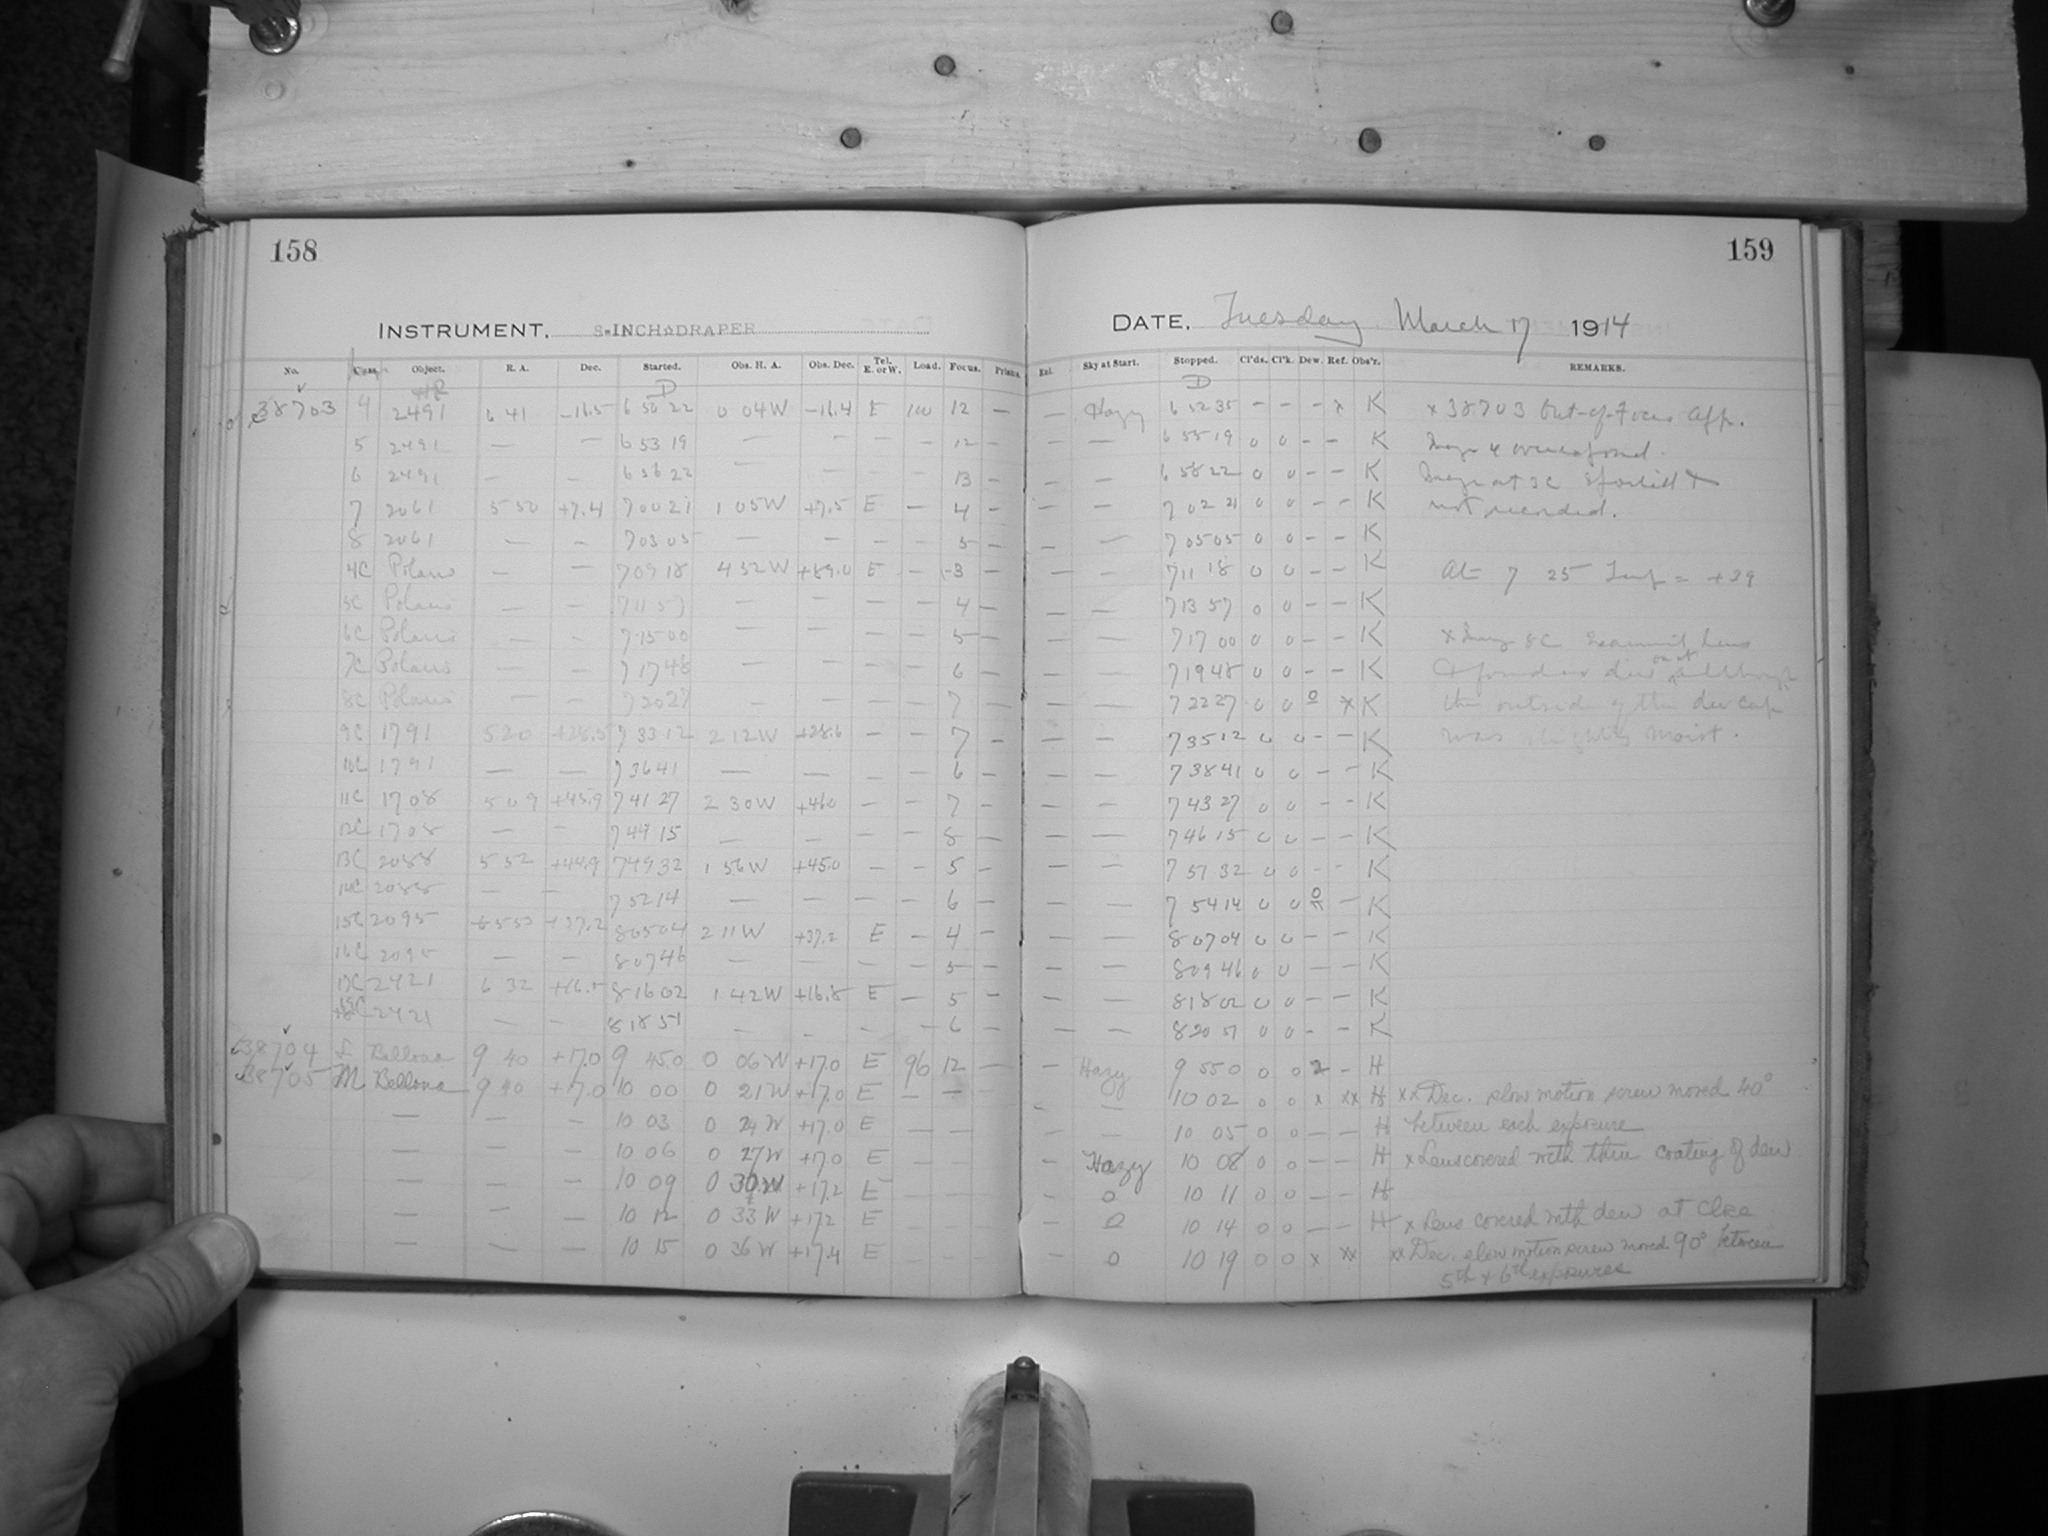 158
159
INSTRUMENT. 8-INCH DRAPER
DATE, Tuesday March 17 1914
No. Object. R. A. Dec. Started. Obs. H. A. Obs. Dec. Tel. E. or W. Load. Focus. Prisms. Ext. Sky at Start. Stopped. Cl'ds. Cl'k. Dew. Ref. Obs'r. REMARKS.
HR D D
38703 4 2491 6 41 -16.5 6 50 22 0 04W -16.4 E 100 12 — — Hazy 6 52 35 - - - x K x 38703 Out-of-Focus App.
5 2491 — — 6 53 19 — — 12 — — — 6 55 19 0 0 - - K Image 4
6 2491 — — 6 56 22 — — — 13 — — — 6 58 22 0 0 - - K Image at 3C spoiled &
7 2061 5 50 +7.4 7 00 21 1 05W +7.5 E — 4 — — — 7 02 21 0 0 - - K not recorded.
8 2061 — — 7 03 05 — — — — 5 — — — 7 05 05 0 0 - - K
4C Polaris — — 7 09 18 4 32W +89.0 E — -3 — — — 7 11 18 0 0 - - K At 7 25 Temp = +39
5C Polaris — — 7 11 57 — — — — 4 — — — 7 13 57 0 0 - - K
6C Polaris — — 7 15 00 — — — — 5 — — — 7 17 00 0 0 - - K x Image 8C Examined Lens
7C Polaris — — 7 17 48 — — — — 6 — — — 7 19 48 0 0 - - K & found no dew on it although
8C Polaris — — 7 20 27 — — — — 7 — — — 7 22 27 0 0 0 x K the outside of the dew cap
9C 1791 5 20 +28.5 7 33 12 2 12W +28.6 — — 7 — — — 7 35 12 0 0 - - K was slightly moist.
10C 1791 — — 7 36 41 — — — — 6 — — — 7 38 41 0 0 - - K
11C 1708 5 09 +45.9 7 41 27 2 30W +46.0 — — 7 — — — 7 43 27 0 0 - - K
12C 1708 — — 7 44 15 — — — — 8 — — — 7 46 15 0 0 - - K
13C 2088 5 52 +44.9 7 49 32 1 56W +45.0 — — 5 — — — 7 51 32 0 0 - - K
14C 2088 — — 7 52 14 — — — — 6 — — — 7 54 14 0 0 - K
15C 2095 5 53 +37.2 8 05 04 2 11W +37.2 E — 4 — — — 8 07 04 0 0 - - K
16C 2095 — — 8 07 46 — — — — 5 — — — 8 09 46 0 0 — - K
17C 2421 6 32 +16.5 8 16 02 1 42W +16.5 E — 5 — — — 8 18 02 0 0 - - K
18C 2421 — — 8 18 51 — — — — 6 — — — 8 20 51 0 0 - - K
38704 L Bellona 9 40 +17.0 9 45.0 0 06W +17.0 E 96 12 — Hazy 9 55.0 0 0 2 - H
38705 M Bellona 9 40 +17.0 10 00 0 21W +17.0 E — — — 10 02 0 0 x xx H xx Dec. slow motion screw moved 40°
— — — 10 03 0 24W +17.0 E — — - — 10 05 0 0 — — H between each exposure
— — — 10 06 0 27W +17.0 E — — — Hazy 10 08 0 0 — — H x Lens covered with thin coating of dew
— — — 10 09 0 30W +17.2 E — — — 0 10 11 0 0 — — H
— — — 10 12 0 33W +17.2 E — — — 0 10 14 0 0 — — H x Lens covered with dew at close
— — — 10 15 0 36W +17.4 E — — — 0 10 19 0 0 x xx xx Dec. slow motion screw moved 90° between
5th & 6th exposures